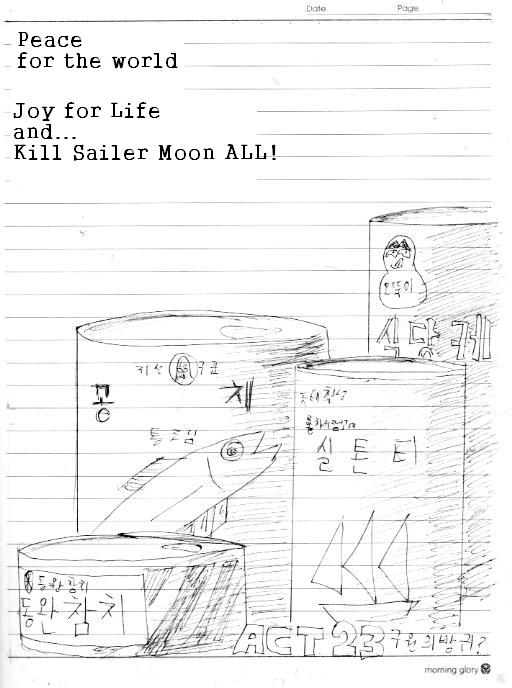 Date.
Page.
Peace
for the world
Joy for Life
and...
Kill Sailer Moon ALL!
오뚝이
꽁 체
통조림
실 튼 티
동원참치
동 원 참 치
ACT 23
morning glory